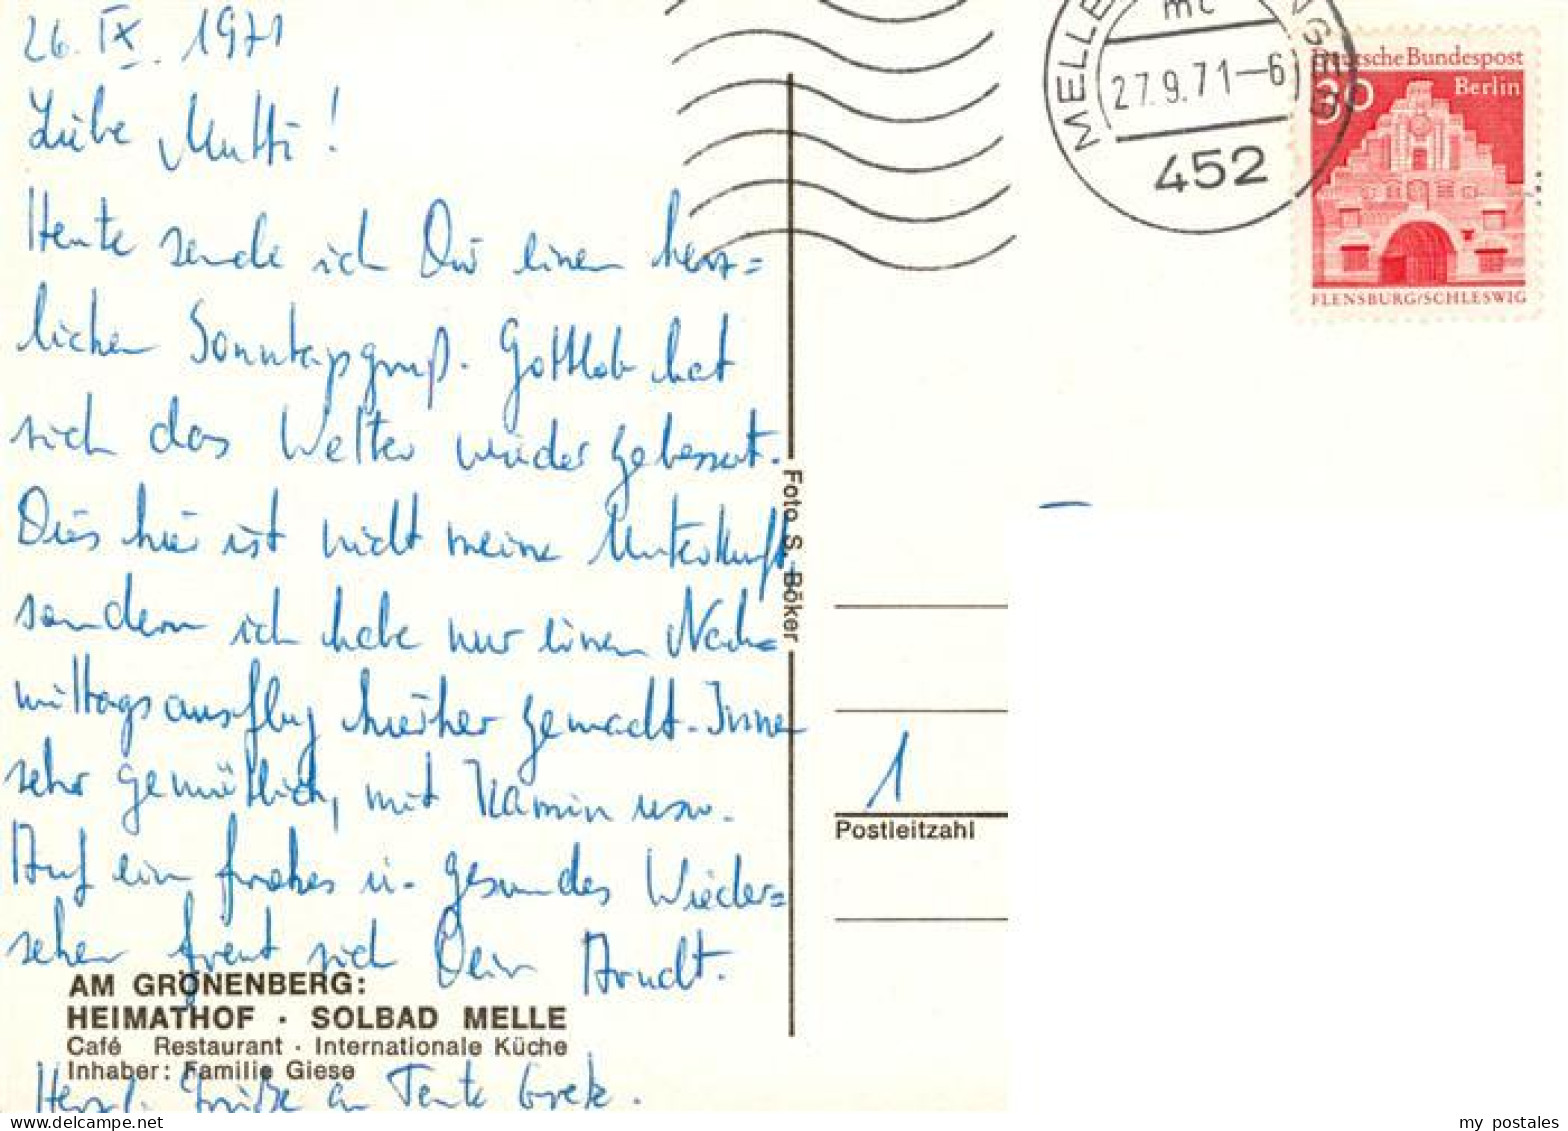 26. IX. 1971
Liebe Mutti!
Heute sende ich Dir einen herz=
lichen Sonntagsgruß. Gottlob hat
sich das Wetter wieder gebessert.
Dies hier ist nicht meine Unterkunft
sondern ich habe nur einen Nach=
mittagsausflug hierher gemacht. Innen
sehr gemütlich, mit Kamin usw.
Auf ein frohes u. gesundes Wieder=
sehen freut sich Dein Arndt.
AM GRÖNENBERG:
HEIMATHOF · SOLBAD MELLE
Café Restaurant · Internationale Küche
Inhaber: Familie Giese
Herzl. Grüße an Tante Grete.
Foto S. Böker
MELLE
mc
27.9.71-6
452
Deutsche Bundespost
30 Berlin
FLENSBURG/SCHLESWIG
1
Postleitzahl
my postales